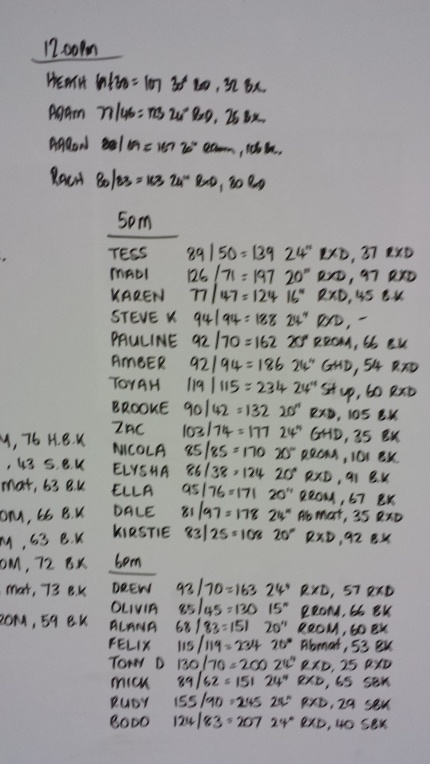 12.00pm
HEATH = 107 30" RXD, 32 BK
ADAM 77/46 = 123 24" RXD, 26 BK
AARON 88/ = 167 20"
RACH 80/83 = 163 24" RXD, 80 RXD
5pm
TESS 89/50 = 139 24" RXD, 37 RXD
MADI 126/71 = 197 20" RXD, 97 RXD
KAREN 77/47 = 124 16" RXD, 45 B.K
STEVE K 94/94 = 188 24" RXD, -
PAULINE 92/70 = 162 20" RROM, 66 B.K
AMBER 92/94 = 186 24" GHD, 54 RXD
TOYAH 119/115 = 234 24" Sit up, 60 RXD
BROOKE 90/42 = 132 20" RXD, 105 B.K
ZAC 103/74 = 177 24" GHD, 35 B.K
M, 76 H.B.K
NICOLA 85/85 = 170 20" RROM, 101 B.K
, 43 S.B.K
ELYSHA 86/38 = 124 20" RXD, 91 B.K
mat, 63 B.K
ELLA 95/76 = 171 20" RROM, 67 B.K
OM, 66 B.K
DALE 81/97 = 178 24" Ab mat, 35 RXD
M, 63 B.K
KIRSTIE 83/25 = 108 20" RXD, 92 B.K
OM, 72 B.K
6pm
mat, 73 B.K
DREW 93/70 = 163 24" RXD, 57 RXD
OLIVIA 85/45 = 130 15" RROM, 66 BK
ROM, 59 B.K
ALANA 68/83 = 151 20" RROM, 60 BK
FELIX 115/119 = 234 20" Abmat, 53 BK
TONY D 130/70 = 200 24" RXD, 25 RXD
MICK 89/62 = 151 24" RXD, 65 SBK
RUDY 155/90 = 245 24" RXD, 29 SBK
BODO 124/83 = 207 24" RXD, 40 SBK